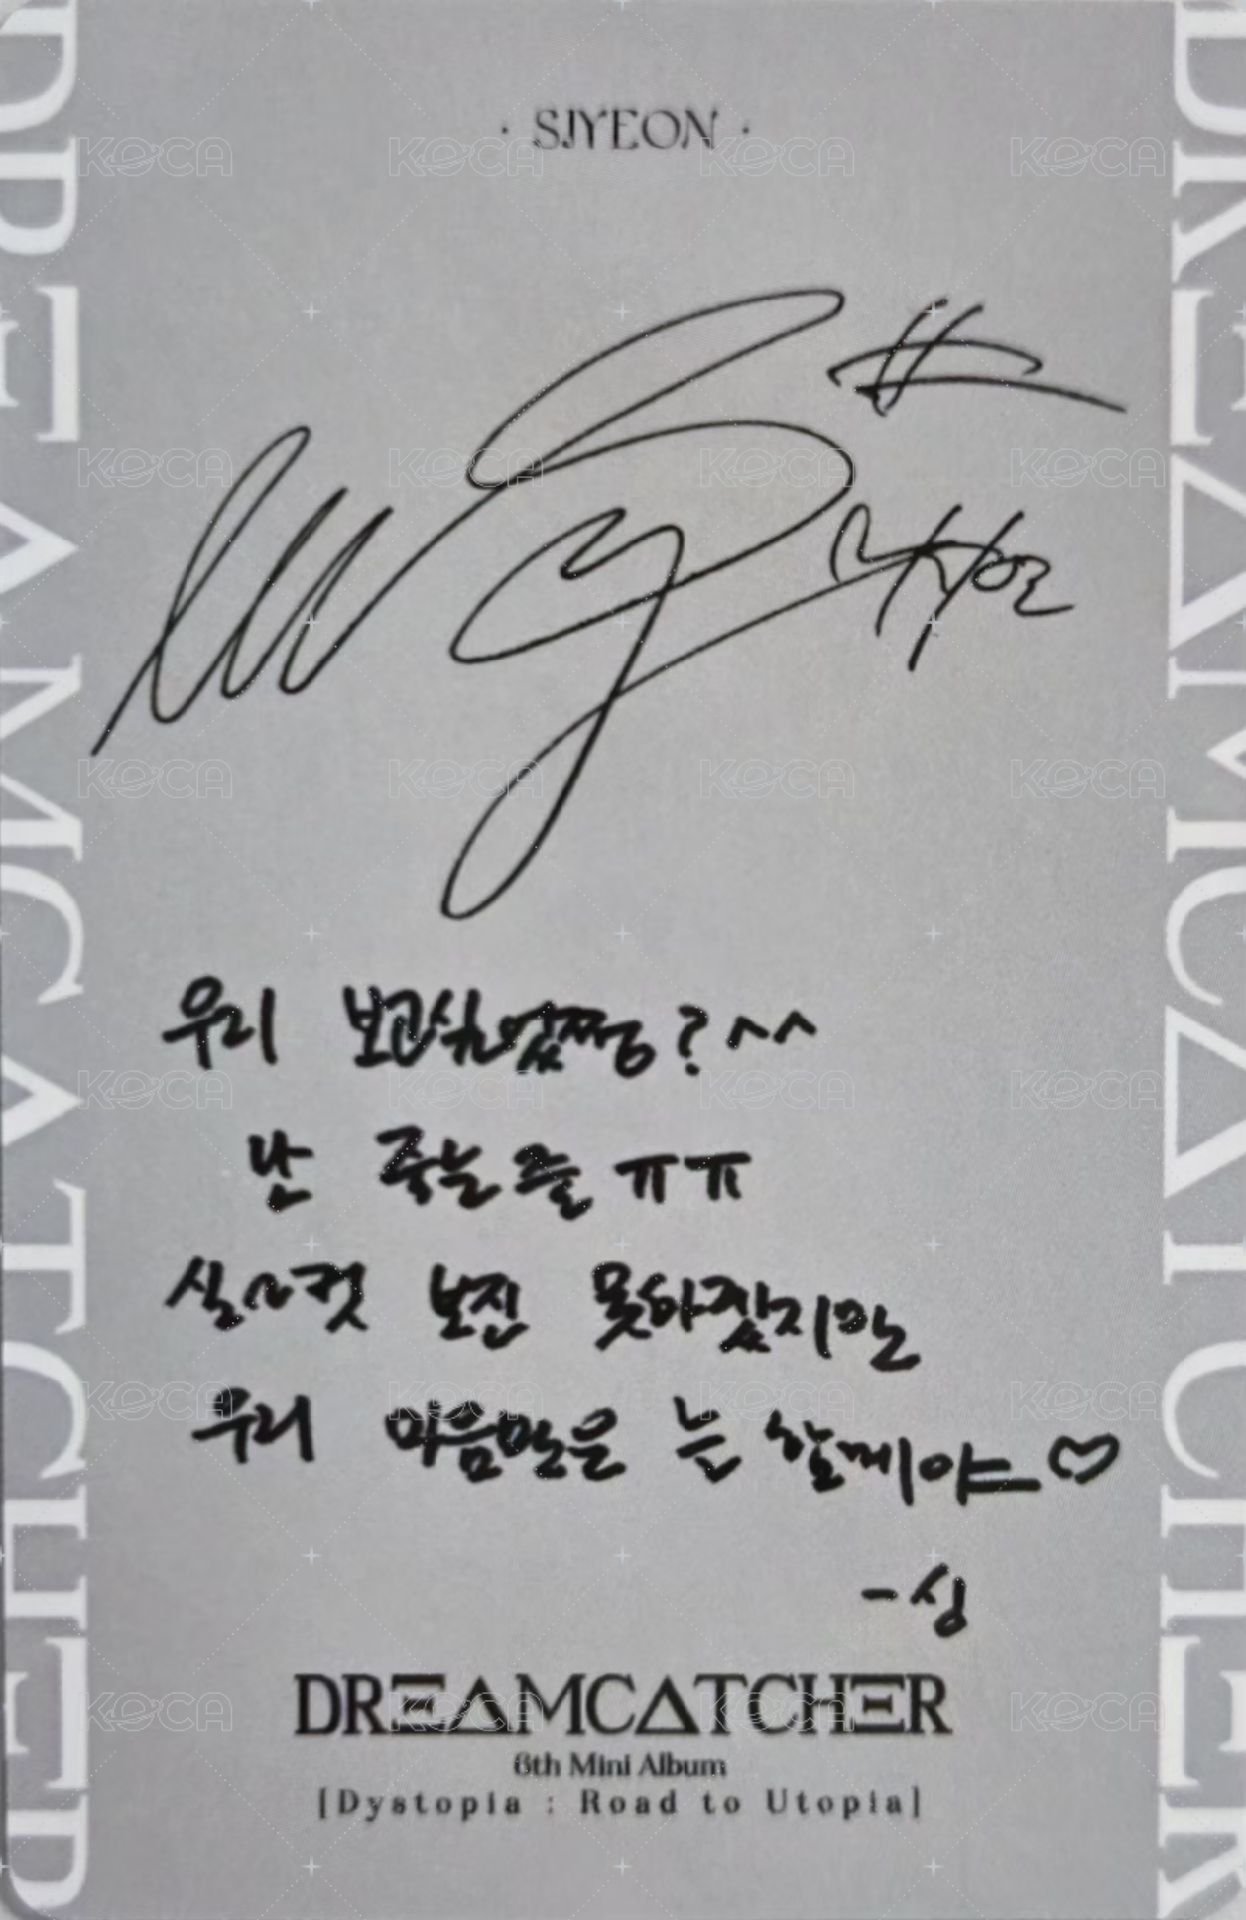 · SIYEON ·
우리 보고싶었찡? ^^
난 죽는 줄 ㅠㅠ
실컷 보진 못하겠지만
우리 마음만은 는 함께야 ♡
- 싱
DREAMCATCHER
6th Mini Album
[Dystopia : Road to Utopia]
DREAMCATCHER
DREAMCATCHER
KOCA